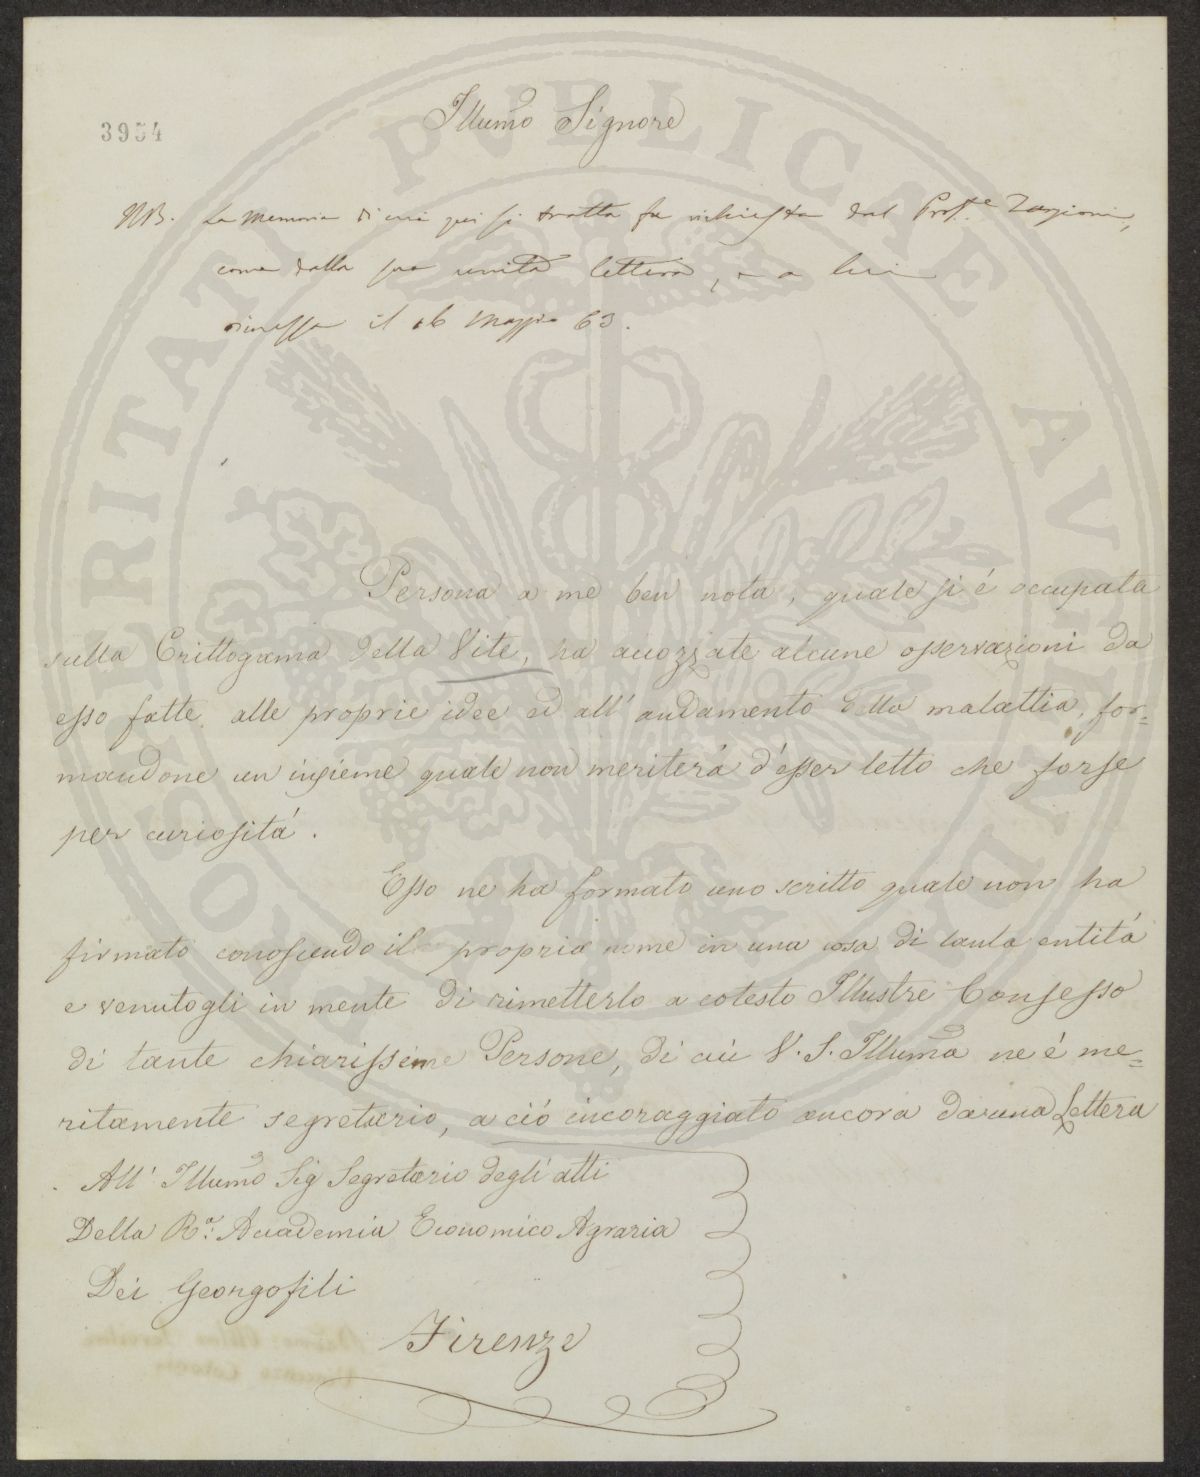 3954
Illumo Signore
NB. La memoria di cui qui si tratta fu richiesta dal Prof.e
come dalla sua unita lettera, e a lui
rimessa il 16 Maggio 63.
Persona a me ben nota, quale si é occupata
sulla Crittogama della Vite, ha accozzate alcune osservazioni da
esso fatte, alle proprie idee ed all' andamento della malattia, for=
mandone un insieme quale non meriterá d'esser letto che forse
per curiositá.
Esso ne ha formato uno scritto quale non ha
firmato conoscendo il proprio nome in una cosa di tanta entitá
e venutogli in mente di rimetterlo a cotesto Illustre Consesso
di tante chiarissime Persone, di cui V. S. Illuma ne é me=
ritamente segretario, a ció incoraggiato ancora da una Lettera
All' Illumo Sig Segretario degli atti
Della R.a Accademia Economico Agraria
Dei Georgofili
Firenze
PROSPERITATI PVBLICAE AVGENDAE